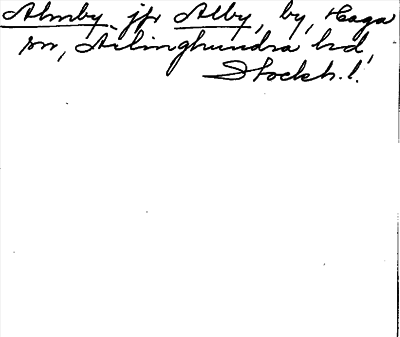 Almby jfr Alby, by, Haga
sn, Ärlinghundra hd,
Stockh. l.